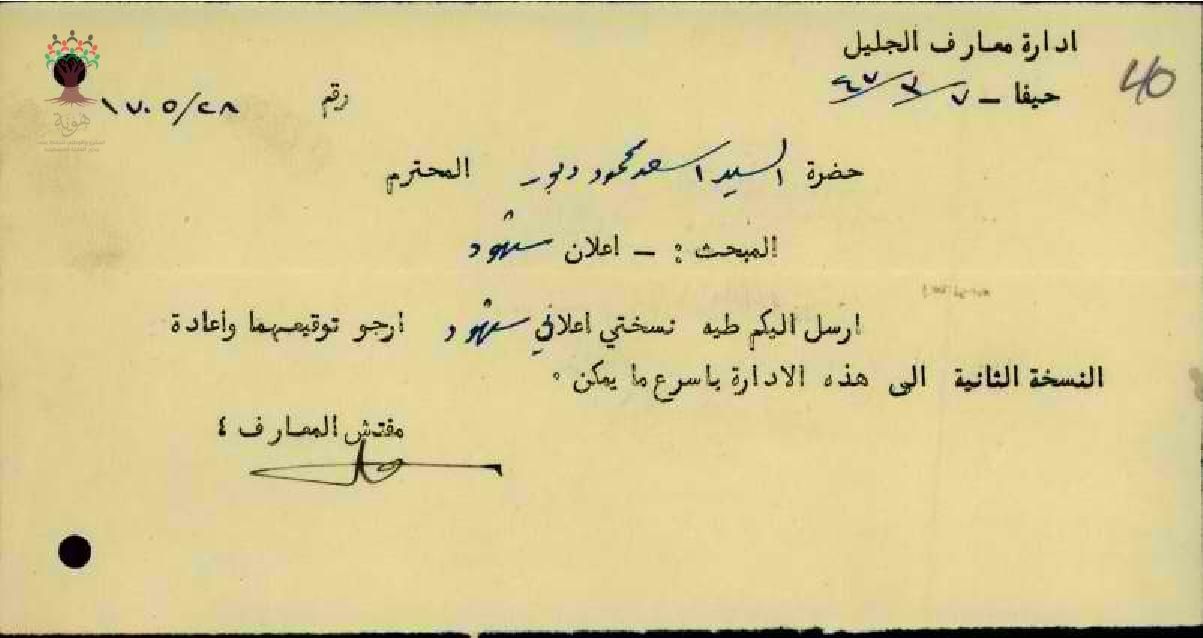 ادارة معارف الجليل
40
حيفا - ٧/٣/٤٧
رقم ١٧٠٥/٢٨
حضرة السيد اسعد محمود دبور المحترم
المبحث : - اعلان شهود
ارسل اليكم طيه نسختي اعلاني شهود ارجو توقيعهما واعادة
النسخة الثانية الى هذه الادارة باسرع ما يمكن .
مفتش المعارف ٤
هوية